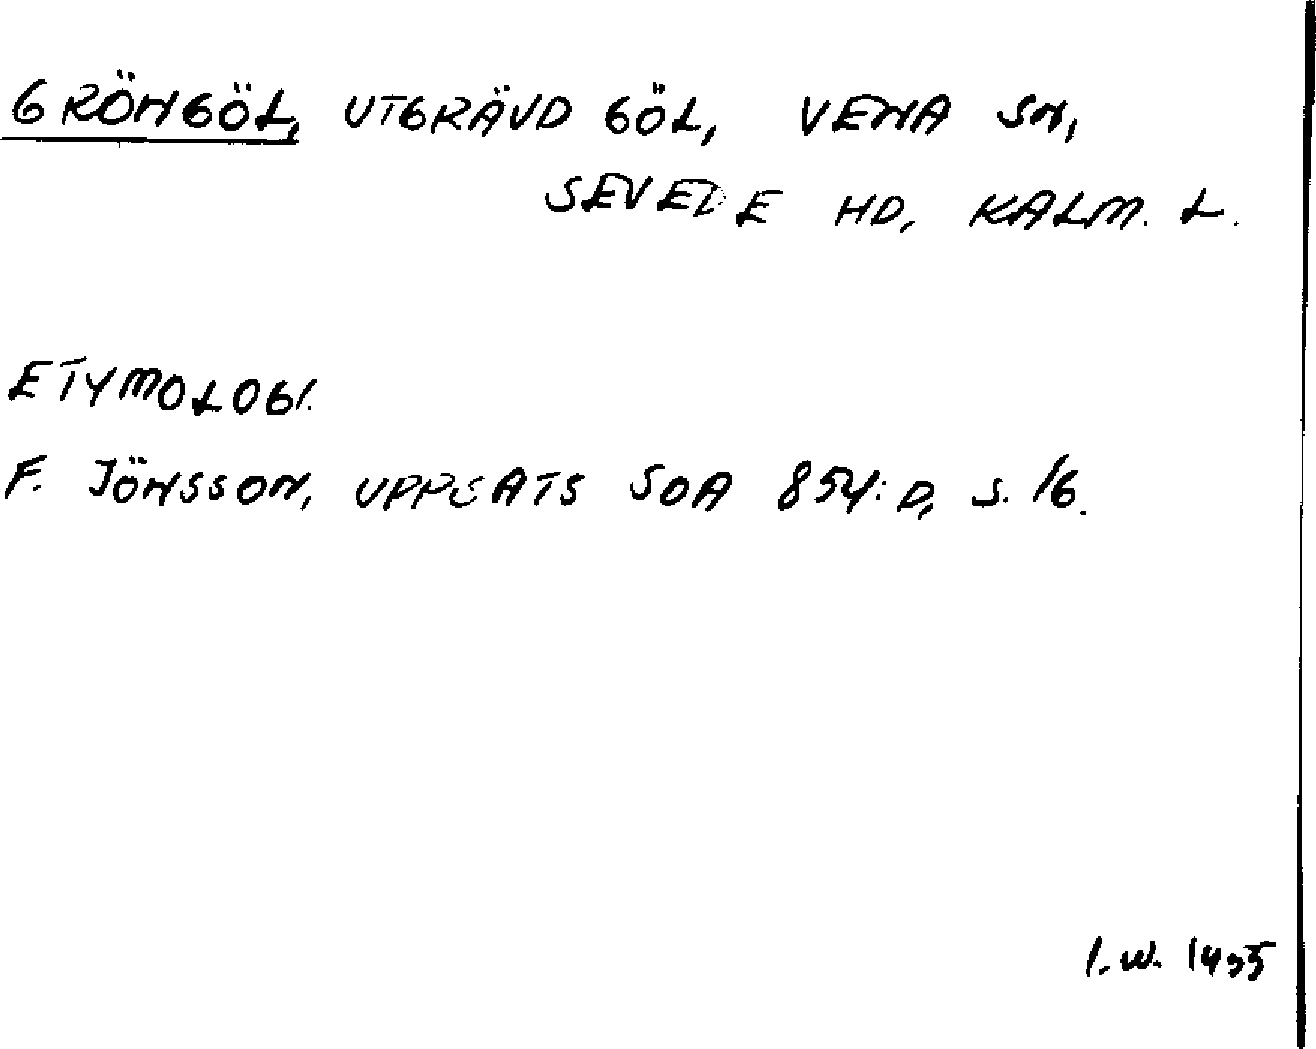 GRÖNGÖL, UTGRÄVD GÖL, VENA SN,
SEVEDE HD, KALM. L.
ETYMOLOGI.
F. JÖNSSON, UPPSATS SOA 854:D, S. 16.
I. W.